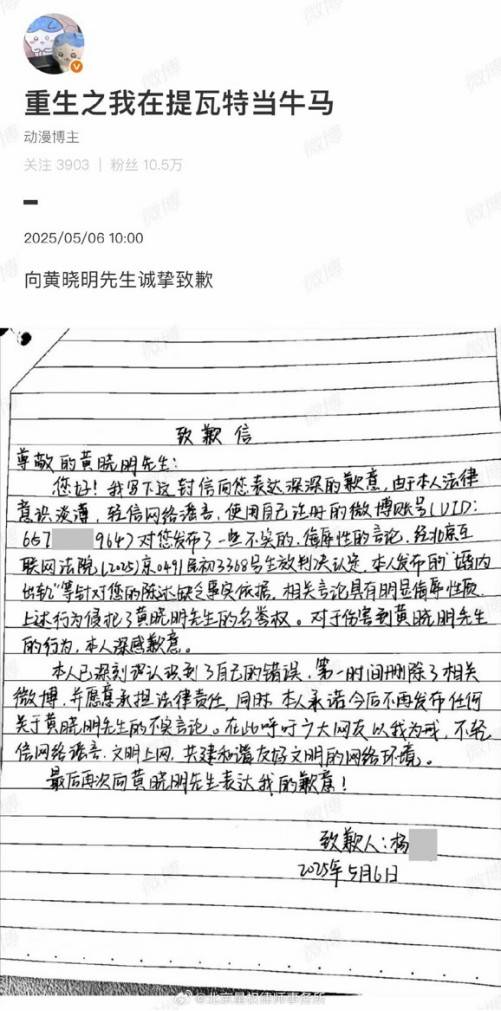 重生之我在提瓦特当牛马
动漫博主
关注 3903 | 粉丝 10.5万
2025/05/06 10:00
向黄晓明先生诚挚致歉
致歉信
尊敬的黄晓明先生:
您好!我写下这封信向您表达深深的歉意,由于本人法律
意识淡薄,轻信网络谣言,使用自己注册的微博账号(UID:
657 964)对您发布了一些不实的、侮辱性的言论,经北京互
联网法院(2025)京0491民初3368号生效判决认定,本人发布的"婚内
出轨"等针对您的陈述缺乏事实依据,相关言论具有明显侮辱性质,
上述行为侵犯了黄晓明先生的名誉权。对于伤害到黄晓明先生
的行为,本人深感歉意。
本人已深刻认识到了自己的错误,第一时间删除了相关
微博,并愿意承担法律责任,同时,本人承诺今后不再发布任何
关于黄晓明先生的不实言论。在此呼吁广大网友以我为戒,不轻
信网络谣言,文明上网,共建和谐友好文明的网络环境。
最后再次向黄晓明先生表达我的歉意!
致歉人:杨
2025年5月6日
微博